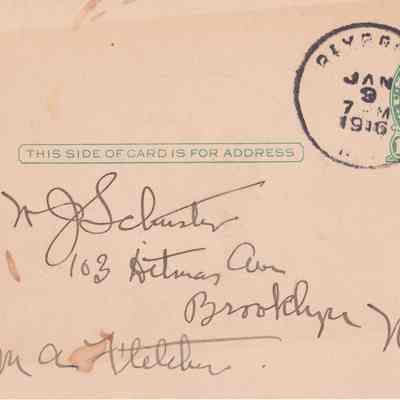 JAN
9
7 M
1916
THIS SIDE OF CARD IS FOR ADDRESS
W J Schuster
103 Ditmas Ave
Brooklyn N
M A Fletcher.